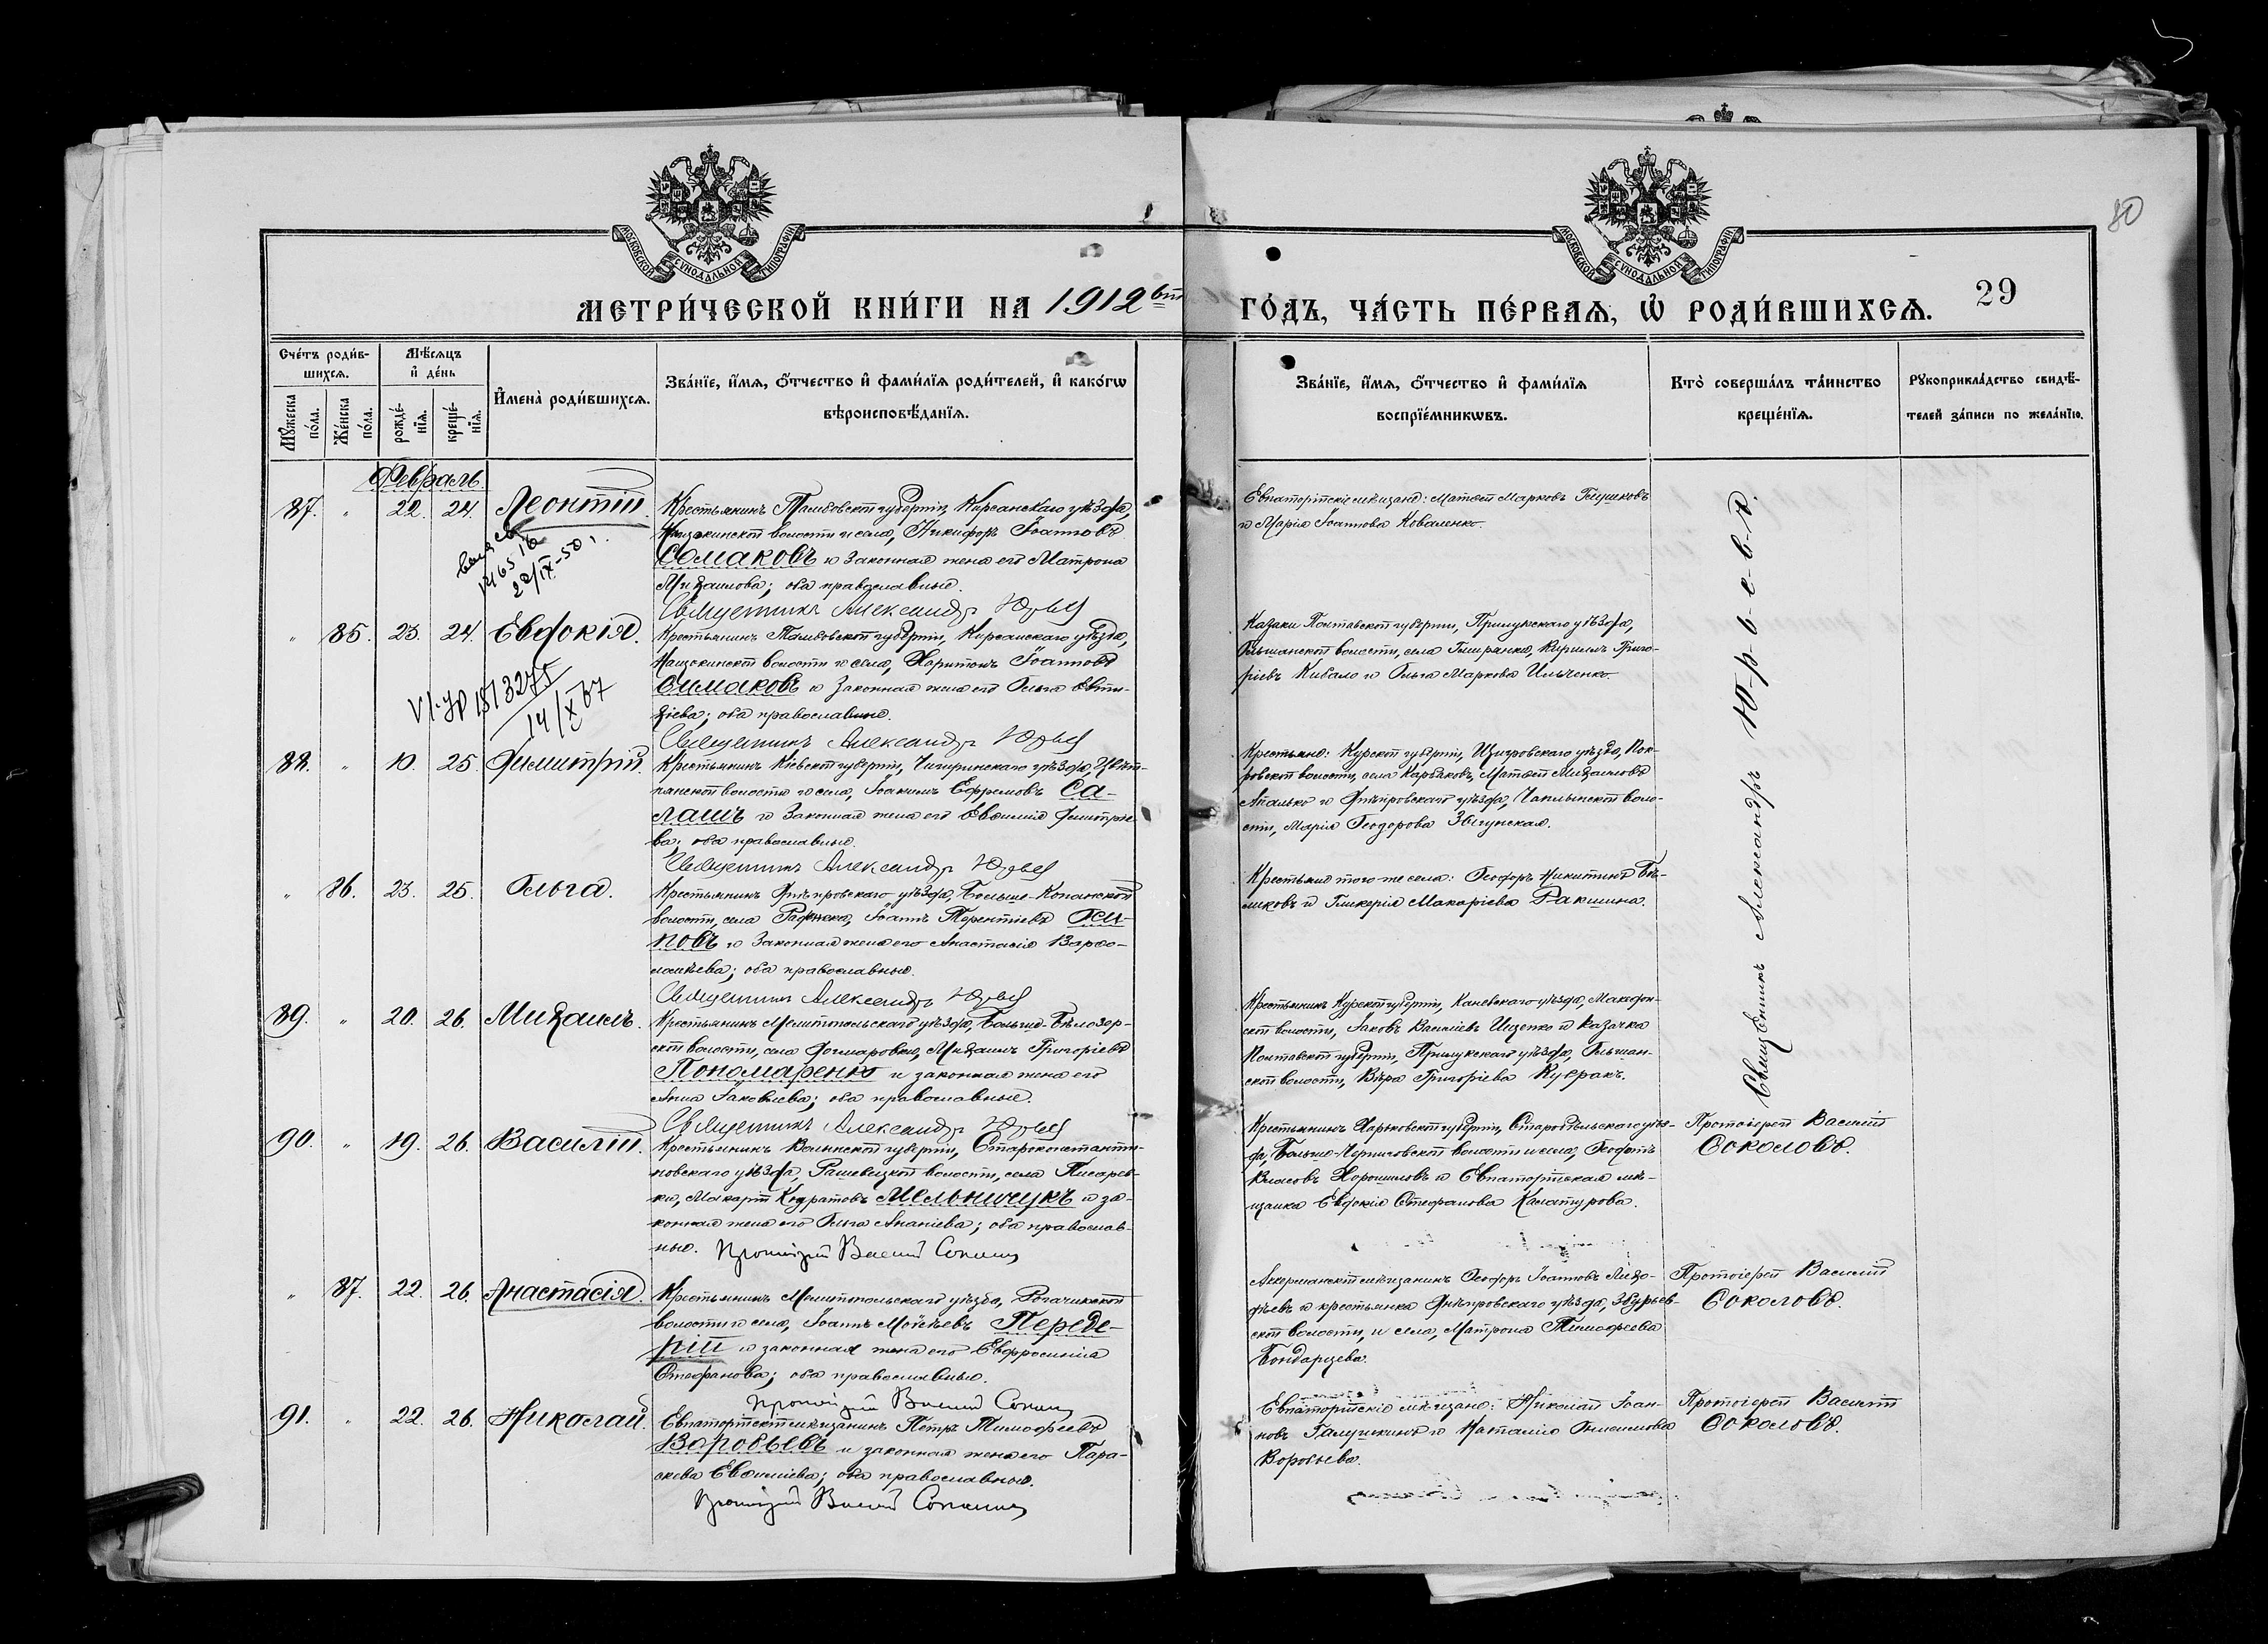 80
МОСКОВСКОЙ СУНОДАЛЬНОЙ ТИПОГРАФІИ
МОСКОВСКОЙ СУНОДАЛЬНОЙ ТИПОГРАФІИ
МЕТРИ́ЧЕСКОЙ КНИ́ГИ НА 1912 ГО́ДЪ, ЧА́СТЬ ПЕ́РВАѦ, Ѡ РОДИ́ВШИХСѦ. 29
Сче́тъ роди́в-
шихсѧ.
Мꙋжеска по́ла.
Же́нска по́ла.
Мѣ́сѧцъ
и҆ де́нь
рожде́-
нїѧ.
креще́-
нїѧ.
И҆мена̀ роди́вшихсѧ.
Зва́нїе, и҆́мѧ, ѻ҆́тчество и҆ фами́лїѧ роди́телей, и҆ како́гѡ
вѣроисповѣ́данїѧ.
Зва́нїе, и҆́мѧ, ѻ҆́тчество и҆ фами́лїѧ
воспрїе́мникѡвъ.
Кто̀ соверша́лъ та́инство
креще́нїѧ.
Рꙋкоприкла́дство свидѣ́-
телей за́писи по жела́нїю.
Февраль.
87. " 22. 24. Леонтій.
Крестьянинъ Тамбовской губерніи, Кирсанскаго уѣзда,
волости и села, Никифоръ Іоанновъ
Симаковъ и законная жена его Матрона
Михаилова; оба православные.
Священникъ Александръ Юрьев
22/IX-50 г.
Евпаторійскіе мѣщане: Матвей Марковъ Глушковъ
и Марія Іоаннова Коваленко.
" 85. 23. 24. Евдокія.
Крестьянинъ Тамбовской губерніи, Кирсанскаго уѣзда,
волости и села, Харитонъ Іоанновъ
Симаковъ и законная жена его Ольга Евти-
хіева; оба православные.
Священникъ Александръ Юрьев
14/X 67
Казаки Полтавской губерніи, Прилукскаго уѣзда,
Ольшанской волости, села Гмирянка, Кириллъ Григо-
ріевъ Кибало и Ольга Маркова Ильченко.
88. " 10. 25. Димитрій.
Крестьянинъ Кіевской губерніи, Чигиринскаго уѣзда, Цвѣт-
нянской волости и села, Іоакимъ Ефремовъ Са-
лашъ и законная жена его Евѳимія Димитріе-
ва; оба православные.
Священникъ Александръ Юрьев
Крестьяне: Курской губерніи, Щигровскаго уѣзда, Пок-
ровской волости, села Матвей Михаиловъ
и Днѣпровскаго уѣзда, Чаплынской воло-
сти, Марія Ѳеодорова Звѣгунская.
" 86. 23. 25. Ольга.
Крестьянинъ Днѣпровскаго уѣзда, Больше-Копанской
волости, села Іоаннъ Терентіевъ Оси-
повъ и законная жена его Анастасія Варѳо-
ломѣева; оба православные.
Священникъ Александръ Юрьев
Крестьяне того-же села: Ѳеодоръ Никитинъ Бѣ-
ликовъ и Гликерія Макаріева Ракшина.
89. " 20. 26. Михаилъ.
Крестьянинъ Мелитопольскаго уѣзда, Больше-Бѣлозер-
ской волости, села Михаилъ Григоріевъ
Пономаренко и законная жена его
Анна Іаковлева; оба православные.
Священникъ Александръ Юрьев
Крестьянинъ Курской губерніи, Каневскаго уѣзда, Македон-
ской волости, Іаковъ Василіевъ Ищенко и казачка
Полтавской губерніи, Прилукскаго уѣзда, Ольшан-
ской волости, Вѣра Григоріева Куеракъ.
Священникъ Александръ Ю-р-ь-е-в-ъ.
90. " 19. 26. Василій.
Крестьянинъ Волынской губерніи, Староконстанти-
новскаго уѣзда, волости, села Писарев-
ки, Макарій Мельничукъ и за-
конная жена его Ольга Ананіева; оба православ-
ные. Протоіерей Василій Соколов
Крестьянинъ Харьковской губерніи, Старобѣльскаго уѣз-
да, Больше-Черниговской волости и села, Ѳеофанъ
Власовъ Хорошиловъ и Евпаторійская мѣ-
щанка Евдокія Стефанова Калатурова.
Протоіерей Василій
Соколовъ.
" 87. 22. 26. Анастасія.
Крестьянинъ Мелитопольскаго уѣзда, Рогачикской
волости и села, Іоаннъ Моѵсеевъ Переде-
рій и законная жена его Евфросинія
Стефанова; оба православные.
Протоіерей Василій Соколов
Аккерманскій мѣщанинъ Ѳеодоръ Іоанновъ
и крестьянка Днѣпровскаго уѣзда, Збурьев-
ской волости, и села, Матрона Тимофеева
Бондарцева.
Протоіерей Василій
Соколовъ.
91. " 22. 26. Николай.
Евпаторійскій мѣщанинъ Петръ Тимофеевъ
Воробьевъ и законная жена его Пара-
скева Евѳиміева; оба православные.
Протоіерей Василій Соколов
Евпаторійскіе мѣщане: Николай Іоан-
новъ Галушкинъ и Наталія Онисимова
Воробьева.
Протоіерей Василій
Соколовъ.